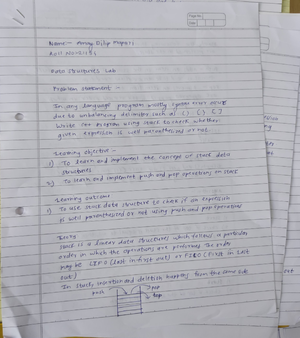 Name:-
Roll
Data structures Lab
Problem statement -
In any language program mostly syntax error occur
due to unbalancing delimiter such as ( ) { } [ ]
Write C++ program using stack to check whether
given expression is well parenthesized or not.
Learning objective -
1) To learn and implement the concept of stack data
structures
2) To learn and implement push and pop operations on stack
Learning outcome
1) To use stack data structure to check if an expression
is well parenthesized or not using push and pop operations
stack is a linear data structures which follows a particular
order in which the operations are performed. The order
may be LIFO (Last in first out) or FILO (First in Last
out)
In stack, insertion and deletion happens from the same side
push pop
top